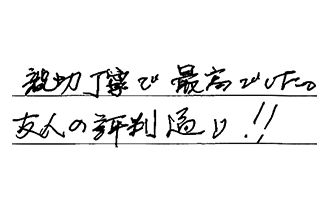 親切丁寧で最高でした。
友人の評判通り!!